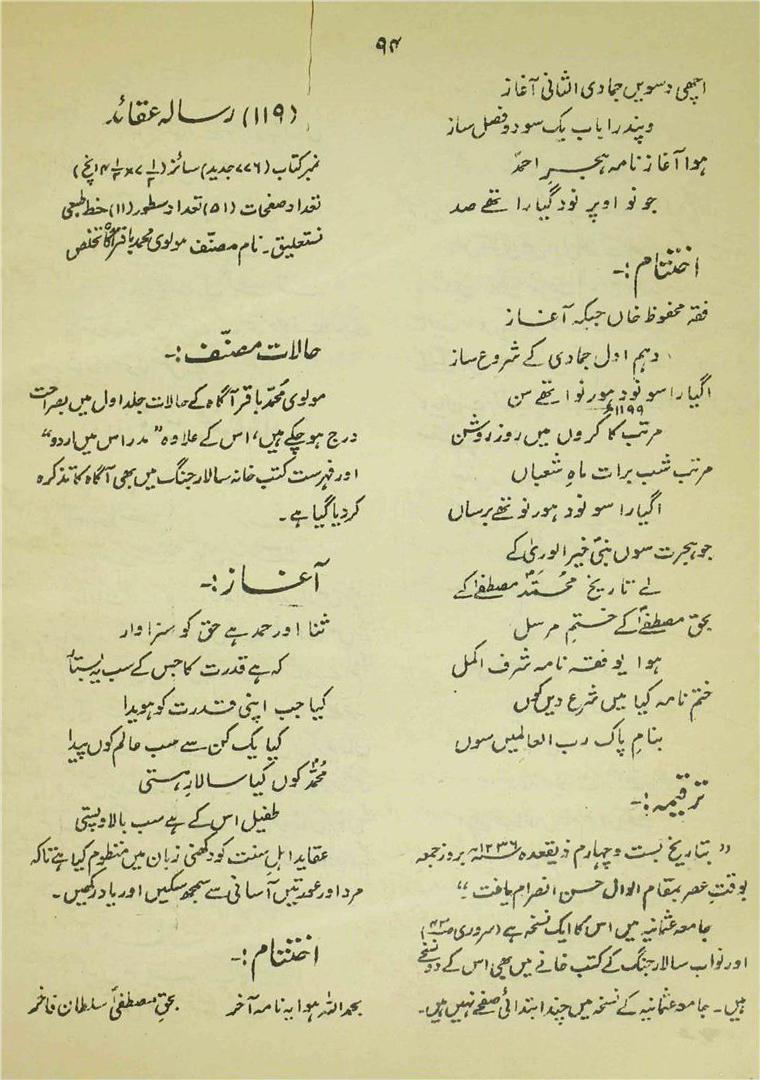 ۹۴
اچھی دسویں جمادی الثانی آغاز
و پندرا باب یک سو دو فصل ساز
ہوا آغاز نامہ ہجرِ احمدؐ
جو نو اوپر نود گیارا تھے صد
اختتام :-
فقہ محفوظ خاں جبکہ آغاز
دہم اول جمادی کے شروع ساز
اگیارا سو نود ہور نو اتھے سن
۱۱۹۹ھ
مرتب کا کروں میں روز روشن
مرتب شب برات ماہِ شعباں
اگیارا سو نود ہور نو تھے برساں
جو ہجرت سوں نبیؐ خیر الوریٰ کے
لے تاریخ محمدؐ مصطفےٰ کے
بحق مصطفےٰؐ کے ختمِ مرسل
ہوا یو فقہ نامہ شرف اکمل
ختم نامہ کیا میں شرع دیں کوں
بنامِ پاک رب العالمیں سوں
ترقیمہ :-
" بتاریخ بست و چہارم ذیقعدہ ۱۲۳۶ھ بروز جمعہ
بوقتِ عصر بمقام الوال حسن انصرام یافت "
جامعہ عثمانیہ میں اس کا ایک نسخہ ہے (سروری صـ۴۳)
اور نواب سالار جنگ کے کتب خانے میں بھی اس کے دو نسخے
ہیں۔ جامعہ عثمانیہ کے نسخہ میں چند ابتدائی صفحے نہیں ہیں۔
(۱۱۹) رسالہ عقائد
نمبر کتاب (۷۷۶ جدید) سائز (۷½×۴½ انچ)
تعداد صفحات (۵۱) تعداد سطور (۱۱) خط طبعی
نستعلیق۔ نام مصنّف مولوی محمد باقر آگاہ تخلص
حالات مصنّف :-
مولوی محمد باقر آگاہ کے حالات جلد اول میں بصراحت
درج ہو چکے ہیں، اس کے علاوہ "مدراس میں اردو"
اور فہرست کتب خانہ سالار جنگ میں بھی آگاہ کا تذکرہ
کر دیا گیا ہے۔
آغاز :-
ثنا اور حمد ہے حق کو سزاوار
کہ ہے قدرت کا جس کے سب یہ بستار
کیا جب اپنی قدرت کو ہویدا
کیا یک کن سے سب عالم کوں پیدا
محمدؐ کوں کیا سالارِ ہستی
طفیل اس کے ہے سب بالا و پستی
عقاید اہل سنت کو دکھنی زبان میں منظوم کیا ہے تاکہ
مرد اور عورتیں آسانی سے سمجھ سکیں اور یاد رکھیں۔
اختتام :-
بحمد اللہ ہوا یہ نامہ آخر بحقِ مصطفیٰؐ سلطان فاخر